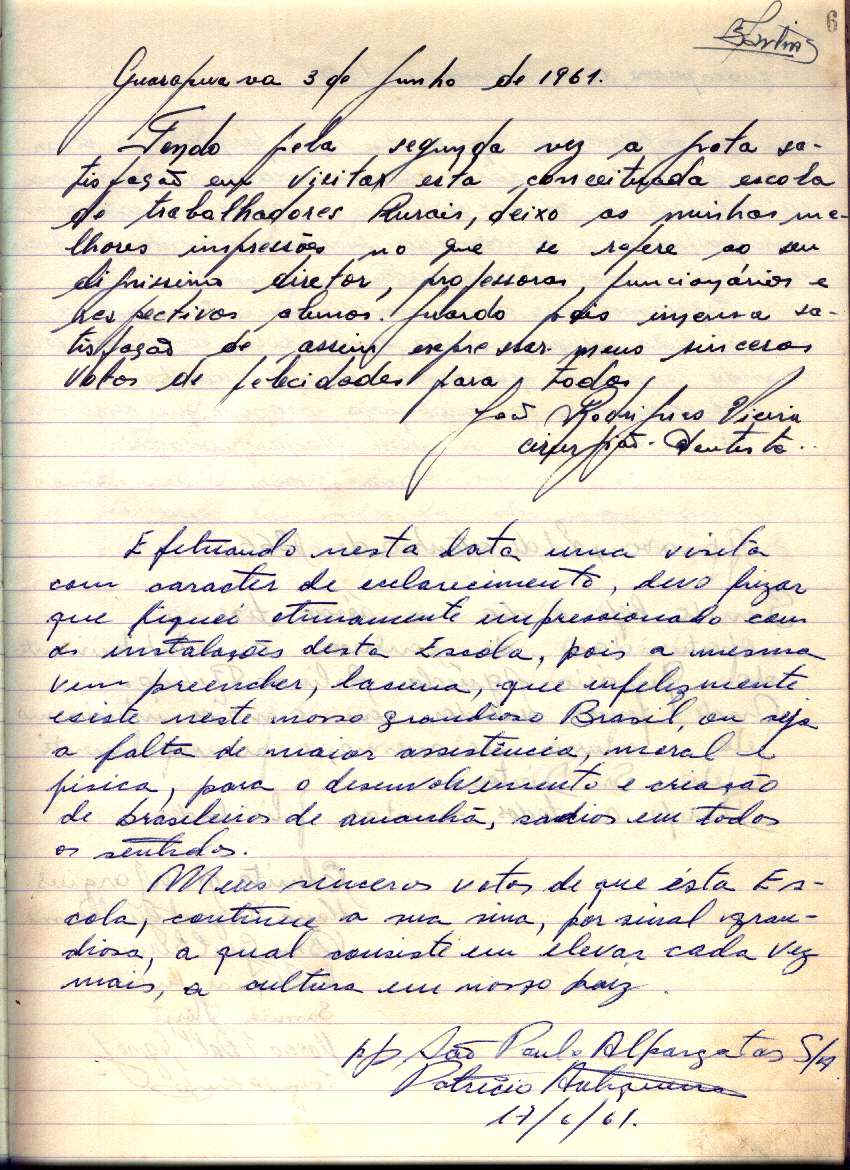 6
Guarapuava 3 de Junho de 1961.
Tendo pela segunda vez a grata sa-
tisfação em visitar esta conceituada escola
de trabalhadores Rurais, deixo as minhas me-
lhores impressões no que se refere ao seu
dignissimo diretor, professoras, funcionários e
respectivos alunos. Guardo pois imensa sa-
tisfação de assim expressar meus sinceros
votos de felicidades para todos
João Rodrigues Vieira
cirurgião-Dentista..
Efetuando nesta data uma visita
com caracter de esclarecimento, devo frizar
que fiquei otimamente impressionado com
as instalações desta Escola, pois a mesma
vem preencher, lacuna, que infelizmente
existe neste nosso grandioso Brasil, ou seja
a falta de maior assistência, moral e
fisica, para o desenvolvimento e criação
de brasileiros de amanhã, sadios em todos
os sentidos.
Meus sinceros votos de que ésta Es-
cola, continue a sua sina, por sinal gran-
diosa, a qual consiste em elevar cada vez
mais, a cultura em nosso paiz.
p/p São Paulo Alpargatas S/A
Patricio
17/6/61.